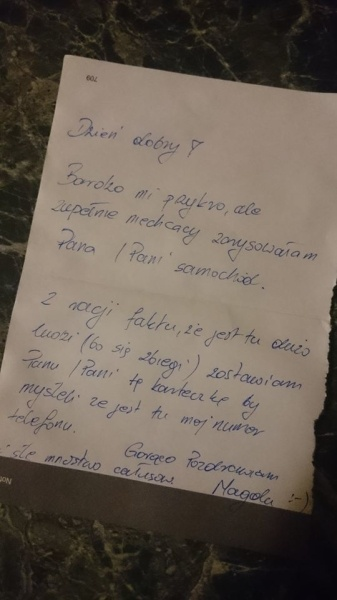 709
Dzień dobry!
Bardzo mi przykro, ale
zupełnie niechcący zarysowałam
Pana / Pani samochód.
Z racji faktu, że jest tu dużo
ludzi (bo się zbiegli) zostawiam
Panu / Pani tę karteczkę by
myśleli że jest tu mój numer
telefonu.
Gorąco Pozdrawiam
i ślę mnóstwo całusów Magda :-)